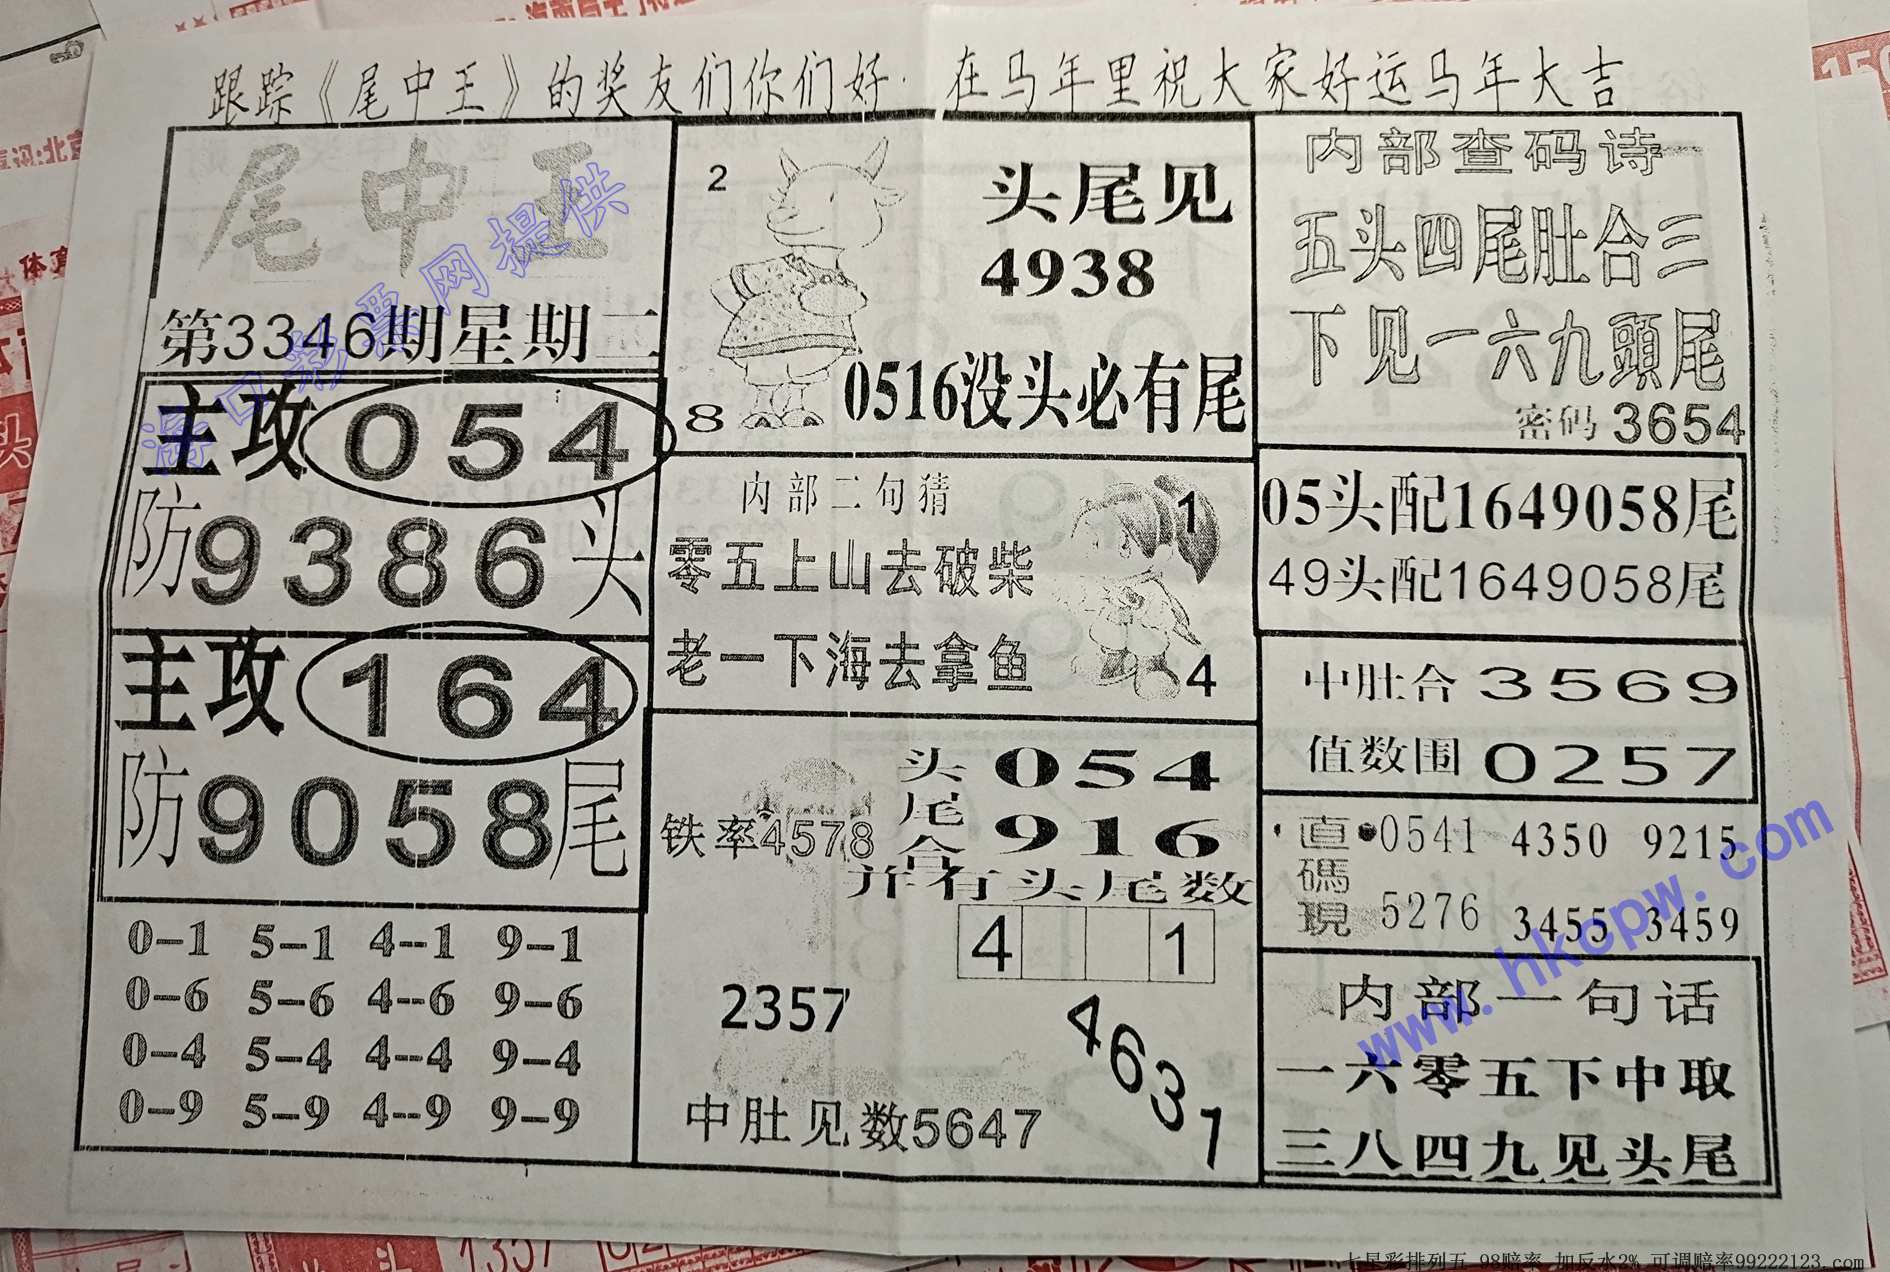 跟踪《尾中王》的奖友们你们好·在马年里祝大家好运马年大吉
尾中王
第3346期星期二
主攻054
防9386头
主攻164
防9058尾
0-1 5-1 4-1 9-1
0-6 5-6 4-6 9-6
0-4 5-4 4-4 9-4
0-9 5-9 4-9 9-9
2
8
头尾见
4938
0516没头必有尾
内部二句猜
零五上山去破柴
老一下海去拿鱼
1
4
铁率4578
头尾合
054
916
并有头尾数
4 1
2357
4631
中肚见数5647
内部查码诗
五头四尾肚合三
下见一六九頭尾
密码3654
05头配1649058尾
49头配1649058尾
中肚合3569
值数围0257
直碼現
0541 4350 9215
5276 3455 3459
内部一句话
一六零五下中取
三八四九见头尾
海口彩票网提供
www.hkcpw.com
七星彩排列五 98赔率 加反水2% 可调赔率99222123.com
体育
头
1357
150